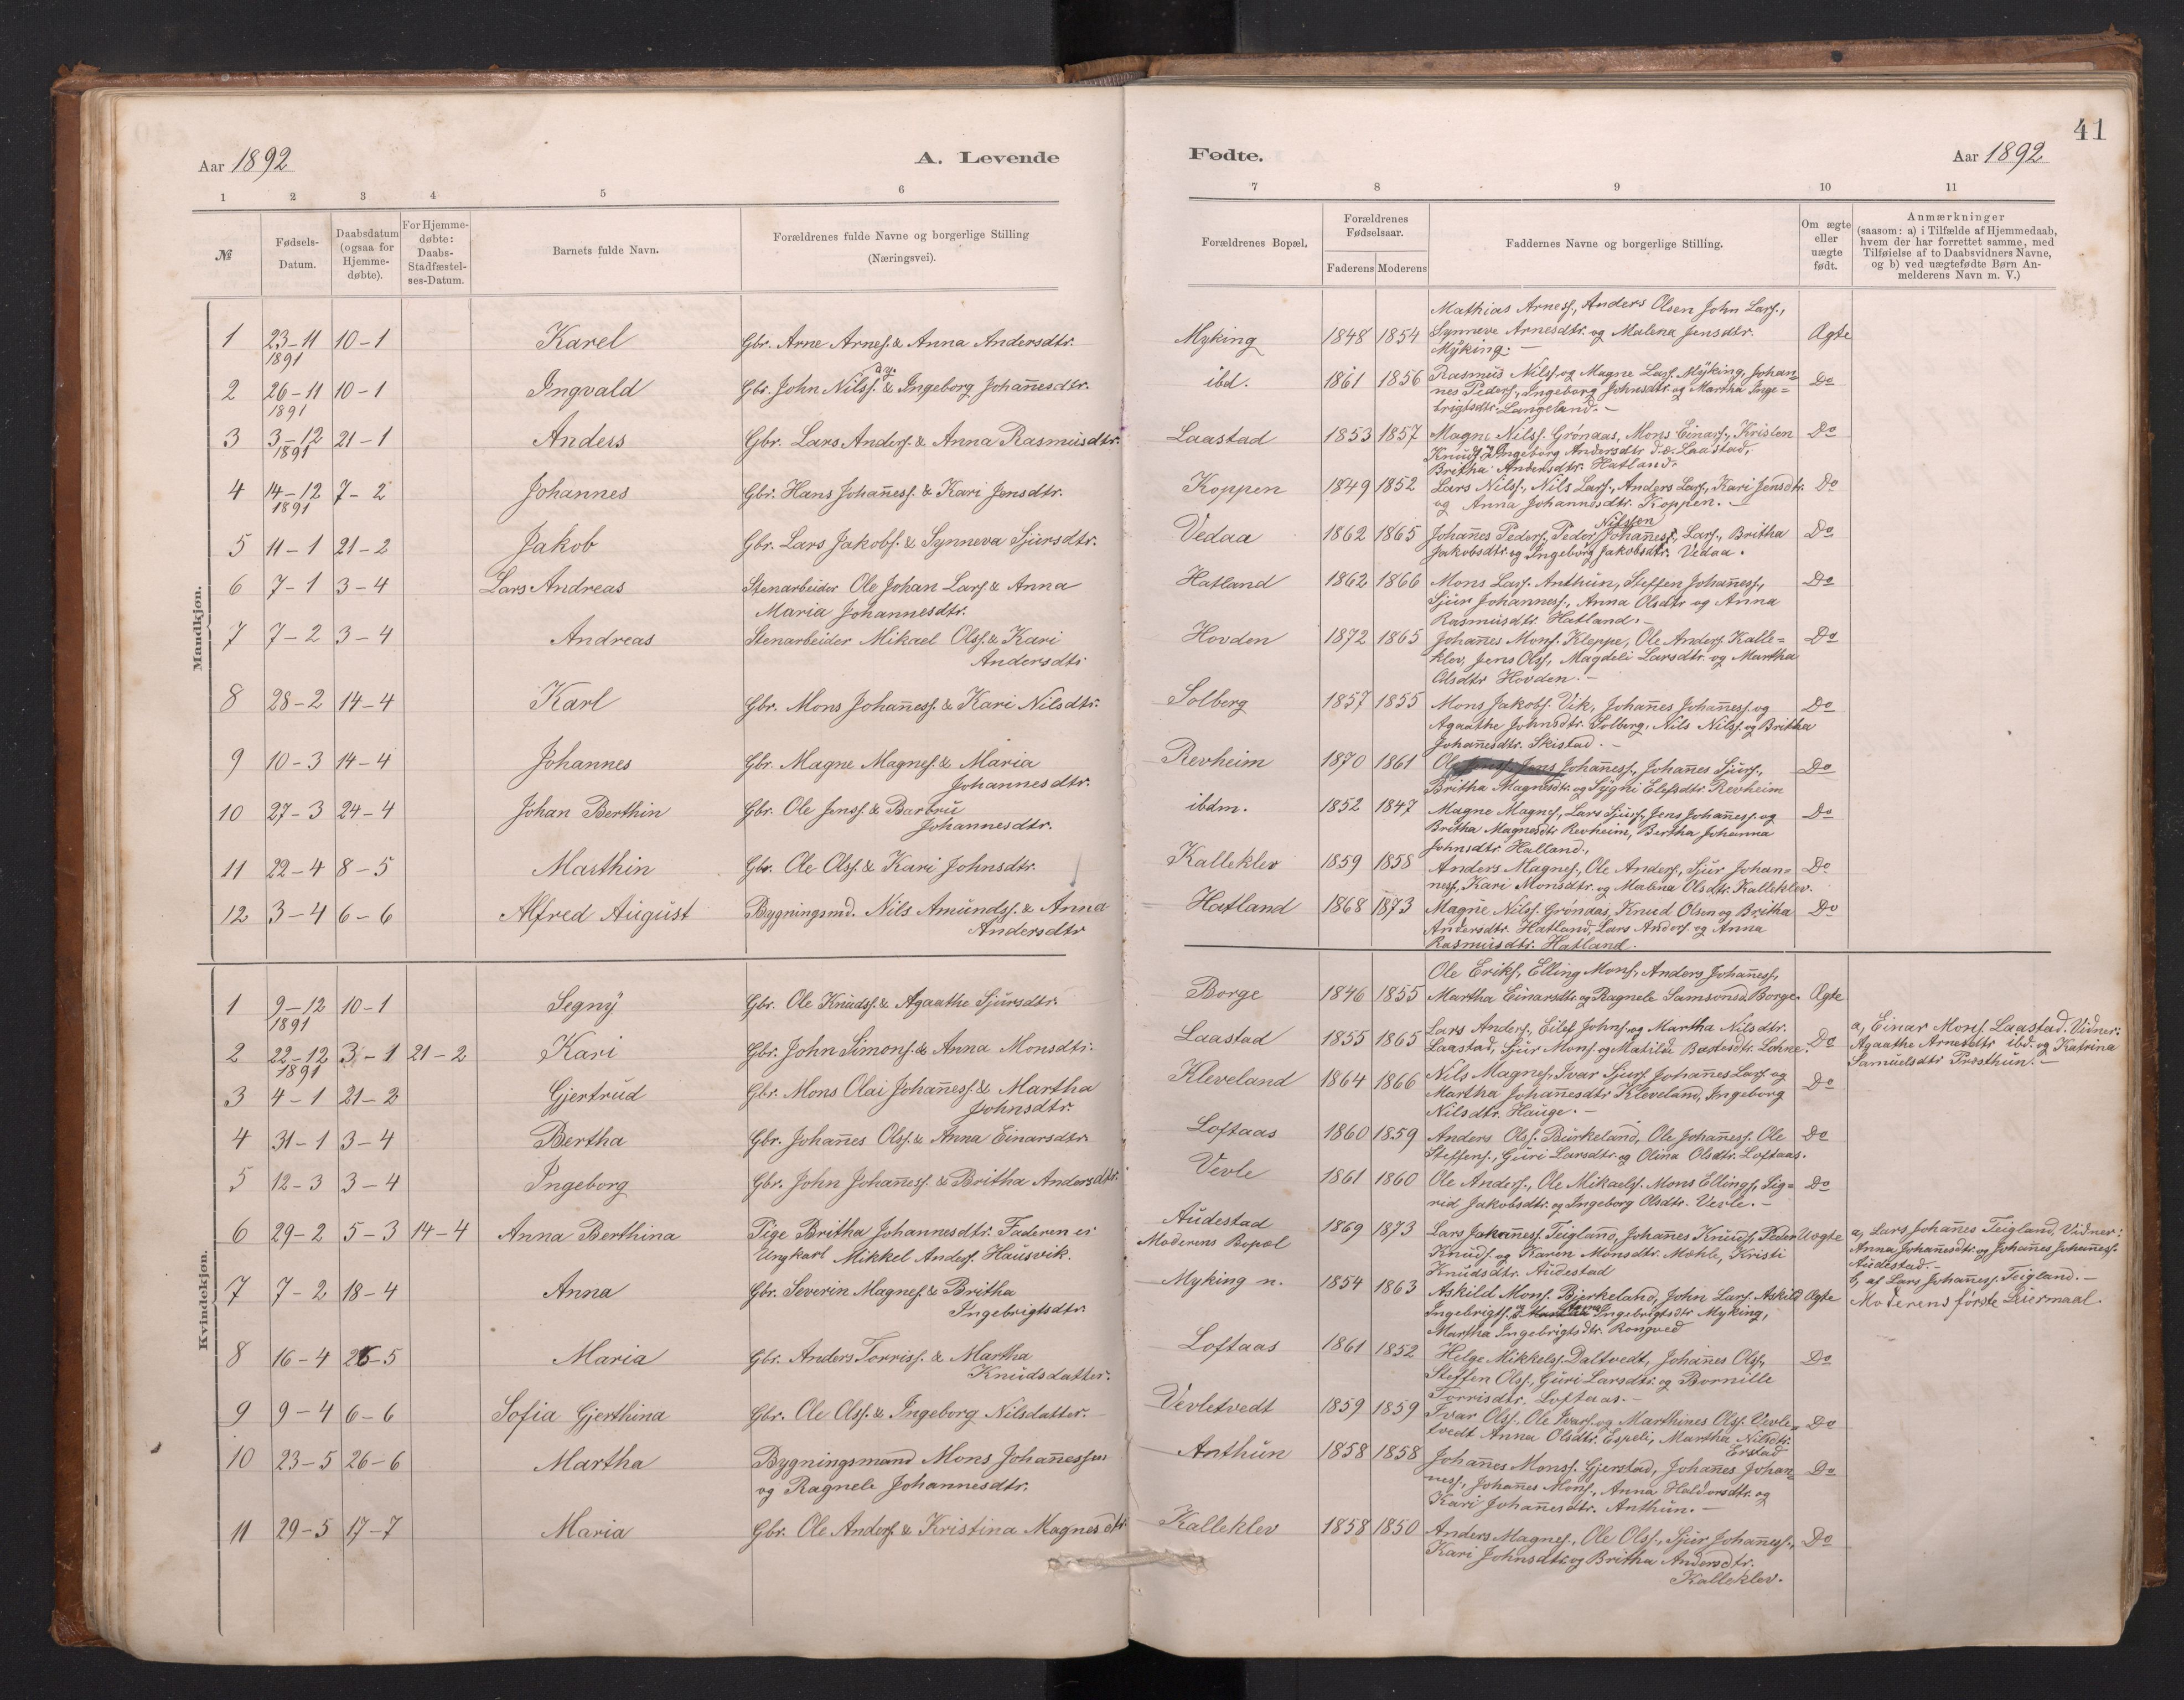 Aar 1892
A. Levende
1 2 3 4 5 6
№
Fødsels-Datum.
Daabsdatum (ogsaa for Hjemme-døbte).
For Hjemme-døbte: Daabs-Stadfæstel-ses-Datum.
Barnets fulde Navn.
Forældrenes fulde Navne og borgerlige Stilling
(Næringsvei).
Mandkjøn.
1 23-11 1891 10-1 Karel Gbr. Arne Arness. & Anna Andersdtr.
2 26-11 1891 10-1 Ingvald Gbr. John Nilss. & Ingeborg Johañesdtr.
3 3-12 1891 21-1 Anders Gbr. Lars Anderss. & Anna Rasmusdtr.
4 14-12 1891 7-2 Johannes Gbr. Hans Johañess. & Kari Jensdtr.
5 11-1 21-2 Jakob Gbr. Lars Jakobs. & Synneva Sjursdtr.
6 7-1 3-4 Lars Andreas Stenarbeider Ole Johan Larss. & Anna
Maria Johannesdtr.
7 7-2 3-4 Andreas Stenarbeider Mikael Olss. & Kari
Andersdtr
8 28-2 14-4 Karl Gbr. Mons Johañess. & Kari Nilsdtr.
9 10-3 14-4 Johannes Gbr. Magne Magness. & Maria
Johannesdtr.
10 27-3 24-4 Johan Berthin Gbr. Ole Jenss. & Barbru
Johannesdtr.
11 22-4 8-5 Marthin Gbr. Ole Olss. & Kari Johnsdtr.
12 3-4 6-6 Alfred August Bygningsmd. Nils Amundss. & Anna
Andersdtr
Kvindekjøn.
1 9-12 1891 10-1 Segny Gbr. Ole Knudss. & Agaathe Sjursdtr.
2 22-12 1891 3-1 21-2 Kari Gbr. John Simons. & Anna Monsdtr.
3 4-1 21-2 Gjertrud Gbr. Mons Olai Johañess. & Martha
Johnsdtr.
4 31-1 3-4 Bertha Gbr. Johañes Olss. & Anna Einarsdtr
5 12-3 3-4 Ingeborg Gbr. John Johañess. & Britha Andersdtr.
6 29-2 5-3 14-4 Anna Berthina Pige Britha Johannesdtr. Faderen er
Ungkarl Mikkel Anders. Hausvik.
7 7-2 18-4 Anna Gbr. Severin Magness. & Britha
Ingebrigtsdtr.
8 16-4 26-5 Maria Gbr. Anders Torriss. & Martha
Knudsdatter.
9 9-4 6-6 Sofia Gjerthina Gbr. Ole Olss. & Ingeborg Nilsdatter.
10 23-5 26-6 Martha Bygningsmand Mons Johañessen
og Ragnele Johannesdtr.
11 29-5 17-7 Maria Gbr. Ole Anders. & Kristina Magnesdtr
41
Fødte.
Aar 1892
7 8 9 10 11
Forældrenes Bopæl.
Forældrenes Fødselsaar.
Faderens Moderens
Faddernes Navne og borgerlige Stilling.
Om ægte eller uægte født.
Anmærkninger
(saasom: a) i Tilfælde af Hjemmedaab,
hvem der har forrettet samme, med
Tilføielse af to Daabsvidners Navne,
og b) ved uægtefødte Børn An-
melderens Navn m. V.)
Mathias Arness., Anders Olsen John Larss.,
Myking 1848 1854 Synneve Arnesdtr. og Malena Jensdtr. Ægte
Myking. —
ibd. 1861 1856 Rasmus Nilss. og Magne Larss. Myking, Johan= Do
nes Peders., Ingeborg Johnsdtr. og Martha Inge=
brigtsdtr. Langeland. —
Laastad 1853 1857 Magne Nilss. Grønaas, Mons Einars., Kristen Do
Knuds. Ingeborg Andersdtr Laastad,
Britha Andersdtr. Hatland.
Koppen 1849 1852 Lars Nilss., Nils Larss., Anders Larss., Kari Jensdtr. Do
og Anna Johannesdtr. Koppen. —
Nilssen
Vedaa 1862 1865 Johañes Peders., Peder Johañess., Larss., Britha Do
Jakobsdtr. og Ingeborg Jakobsdtr. Vedaa.
Hatland 1862 1866 Mons Larss. Anthun, Steffen Johañess., Do
Sjur Johanness., Anna Olsdtr og Anna
Rasmusdtr. Hatland. —
Hovden 1872 1865 Johañes Monss. Kleppe, Ole Anders. Kalle= Do
klev, Jens Olss., Magdeli Larsdtr. og Martha
Olsdtr Hovden. —
Solberg 1857 1855 Mons Jakobs. Vik, Johañes Johañess. og Do
Agaathe Johnsdtr. Solberg, Nils Nilss. og Britha
Johañesdtr. Skistad. —
Revheim 1870 1861 Ole Johañess., Johañes Sjurs., Do
Britha Magnesdtr. og Sygni Elefsdtr. Revheim
ibdm. 1852 1847 Magne Magness., Lars Sjurs., Jens Johañess. og Do
Britha Magnesdtr Revheim, Bertha Johanna
Johnsdtr. Halland.,
Kalleklev 1859 1858 Anders Magness., Ole Anders., Sjur Johan= Do
ness., Kari Monsdtr. og Malena Olsdtr. Kalleklev.
Hatland 1868 1873 Magne Nilss. Grønaas, Knud Olsen og Britha Do
Andersdtr. Hatland, Lars Anders. og Anna
Rasmusdtr. Hatland.
Ole Eriks., Elling Mons., Anders Johañess.,
Borge 1846 1855 Martha Einarsdtr. og Ragnele Samsonsd. Borge. Ægte
Laastad 1855 1865 Lars Anders., Eilef Johns. og Martha Nilsdtr. Do a, Einar Mons. Laastad. Vidner:
Laastad, Sjur Mons. og Matilde Lohne. Agaathe Arnesdtr ibd. og Katrina
Samuelsdtr Præsthun. —
Kleveland 1864 1866 Nils Magness., Ivar Sjurs. Johañes Larss og Do
Martha Johañesdtr Kleveland, Ingeborg
Nilsdtr. Hauge. —
Loftaas 1860 1859 Anders Olss. Burkeland, Ole Johañess. Ole Do
Steffens., Guri Larsdtr. og Olina Olsdtr. Loftaas.
Vevle 1861 1860 Ole Anders., Ole Mikaels. Mons Ellings., Sig= Do
rid Jakobsdtr. og Ingeborg Olsdtr. Vevle. —
Audestad 1869 1873 Lars Johañess. Teigland, Johañes Knuds., Peder Uægte a, Lars Johañes Teigland, Vidner:
Moderens Bopæl Knuds. og Karen Monsdtr. Mæhle, Kristi Anna Johañesdtr. og Johañes Johañess.
Knudsdtr. Audestad Audestad. —
b, af Lars Johañess. Teigland. —
Moderens første Leiermaal.
Myking n. 1854 1863 Askild Mons. Bjørkeland, John Larss. Askild Ægte
Ingebrigts. Ingebrigtsdtr Myking,
Martha Ingebrigtsdtr. Rongved
Loftaas 1861 1852 Helge Mikkels. Daltvedt, Johañes Olss., Do
Steffen Olss., Guri Larsdtr. og Bornille
Torrisdtr. Loftaas. —
Vevletvedt 1859 1859 Ivar Olss., Ole Ivars. og Marthines Olss. Vevle= Do
tvedt Anna Olsdtr. Espeli, Martha Nilsdtr.
Erstad
Anthun 1858 1858 Johañes Monss. Gjerstad, Johañes Johan= Do
ness., Johañes Mons., Anna Haldorsdtr. og
Kari Johañesdtr. Anthun. —
Kalleklev 1858 1850 Anders Magness., Ole Olss., Sjur Johañess., Do
Kari Johnsdtr. og Britha Andersdtr.
Kalleklev.